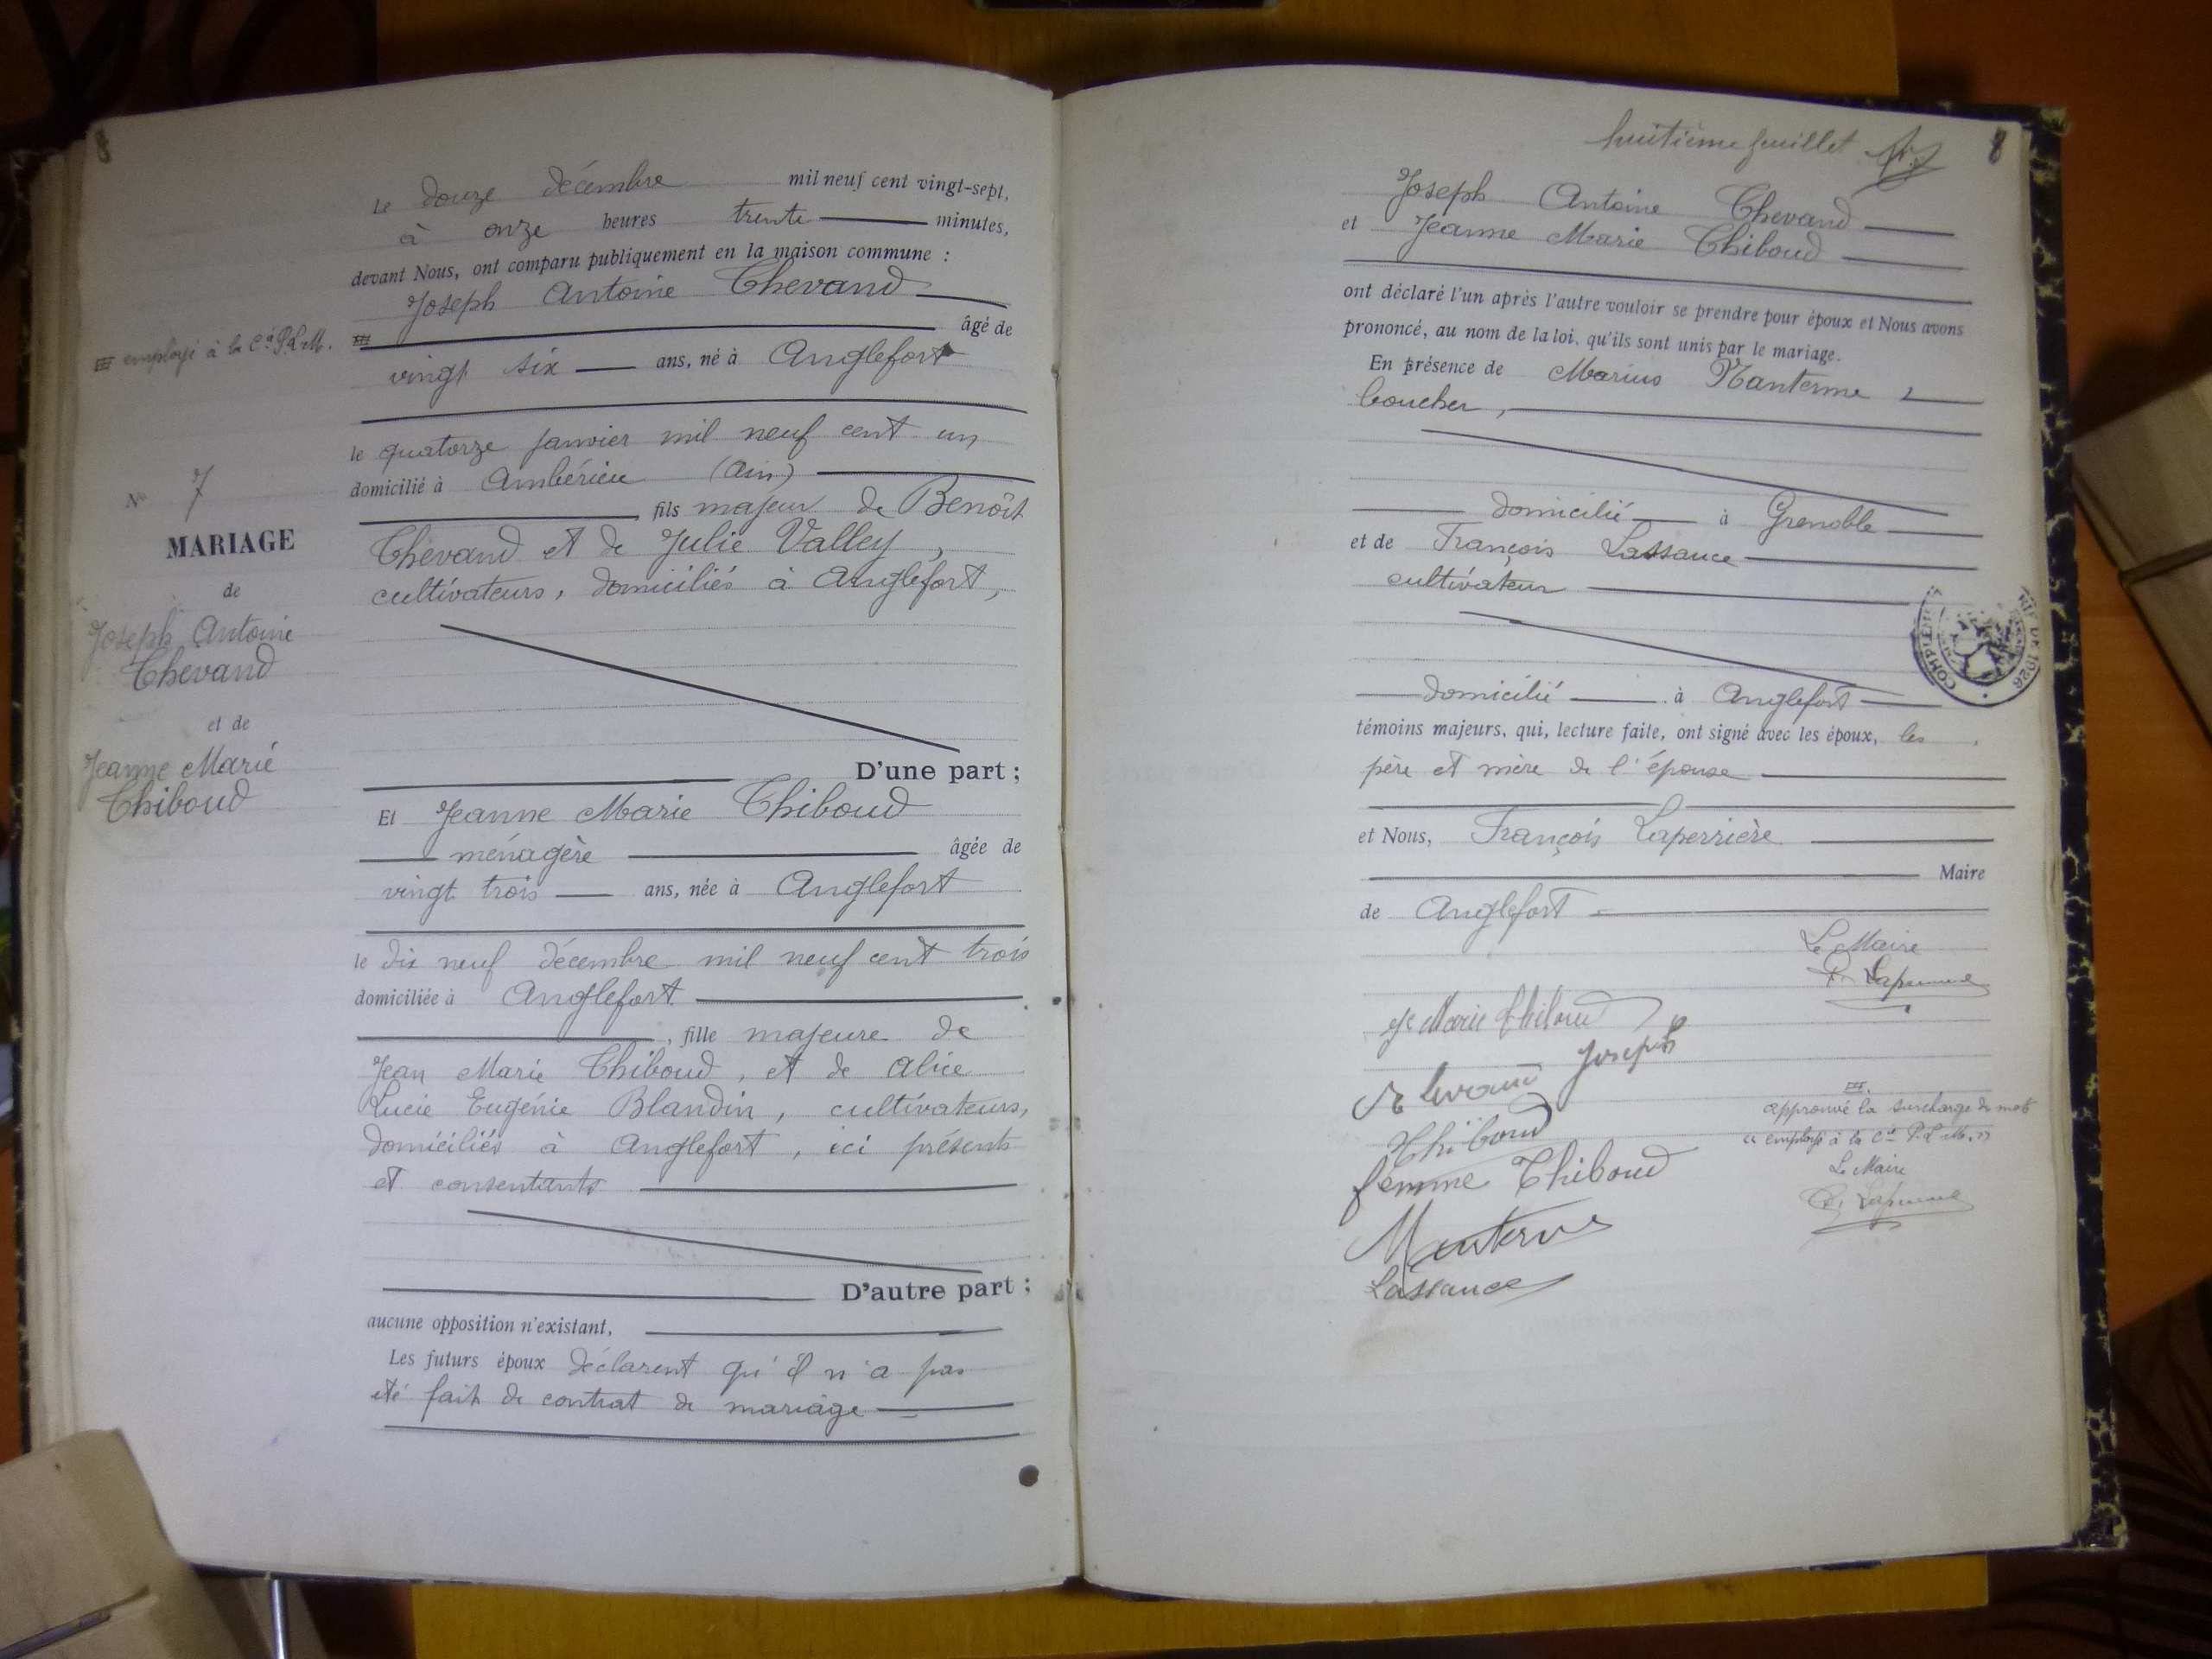 8
le douze décembre mil neuf cent vingt-sept,
à onze heures trente minutes,
devant Nous, ont comparu publiquement en la maison commune :
Joseph Antoine Chevand
âgé de
employé à la Cie P.L.M.
vingt six ans, né à Anglefort
le quatorze janvier mil neuf cent un
domicilié à Ambérieu (Ain)
, fils majeur de Benoît
Chevand et de Julie Valley,
cultivateurs, domiciliés à Anglefort,
No 7
MARIAGE
de
Joseph Antoine
Chevand
et de
Jeanne Marie
Thiboud
D'une part ;
Et Jeanne Marie Thiboud
ménagère âgée de
vingt trois ans, née à Anglefort
le dix neuf décembre mil neuf cent trois
domiciliée à Anglefort
, fille majeure de
Jean Marie Thiboud, et de Alice
Lucie Eugénie Blandin, cultivateurs,
domiciliés à Anglefort, ici présents
et consentants
D'autre part ;
aucune opposition n'existant,
Les futurs époux déclarent qu'il n'a pas
été fait de contrat de mariage
huitième feuillet 8
Joseph Antoine Chevand
et Jeanne Marie Thiboud
ont déclaré l'un après l'autre vouloir se prendre pour époux et Nous avons
prononcé, au nom de la loi, qu'ils sont unis par le mariage.
En présence de Marius Nanterme,
boucher,
domicilié à Grenoble
et de François Lassance
cultivateur
domicilié à Anglefort
témoins majeurs, qui, lecture faite, ont signé avec les époux, les
père et mère de l'épouse
et Nous, François Laperrière
Maire
de Anglefort
Le Maire
Jne Marie Thiboud
Chevand Joseph
Thiboud
femme Thiboud
Lassance
approuvé la surcharge de mots
"employé à la Cie P.L.M."
Le Maire
1926